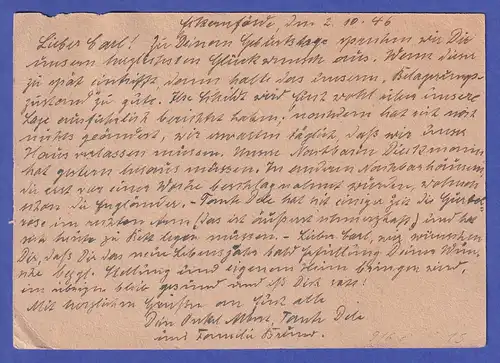 Eckernförde, den 2.10.46
Lieber Carl! Zu Deinem Geburtstage sprechen wir Dir
unsern herzlichsten Glückwunsch aus. Wenn dieser
zu spät eintrifft, dann halte das unserm „Belagerungs-
zustand“ zu gute. Ilse Schildt wird Euch wohl über unsere
Lage ausführlich berichtet haben; nachdem hat sich noch
nichts geändert, wir erwarten täglich, daß wir unser
Haus verlassen müssen. Unsere Nachbarin
hat gestern heraus müssen. In anderen Nachbarhäusern,
die erst vor einer Woche beschlagnahmt wurden, wohnen
schon die Engländer. – Tante Dele hat seit einiger Zeit die Gürtel-
rose im rechten Arm (das ist äußerst schmerzhaft) und hat
sich heute zu Bett legen müssen. – Lieber Carl, wir wünschen
Dir, daß Dir das neue Lebensjahr bald Erfüllung Deiner Wün-
sche bezgl. Stellung und eigenem Heim bringen wird,
im übrigen bleib gesund und iß Dich satt!
Mit herzlichen Grüßen an Euch alle
Dein Onkel Albert, Tante Dele
und Familie Brund.